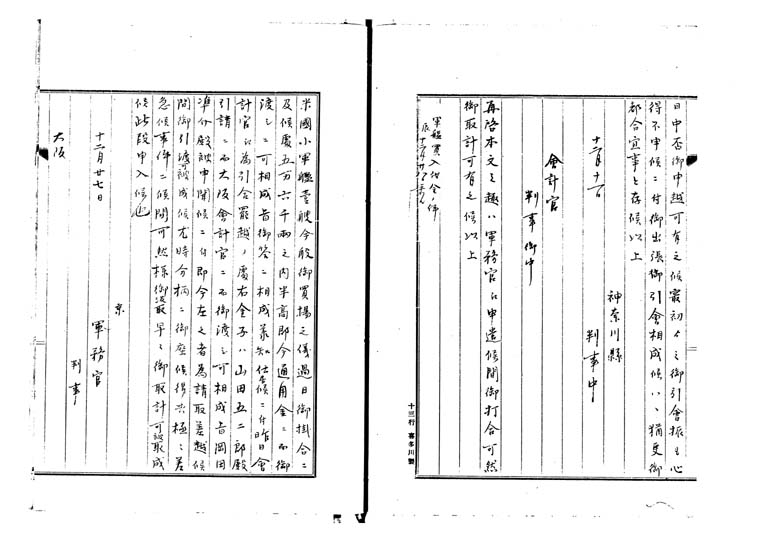 日申否御申越可有之候最初ゟ之御引會振モ心
得不申候ニ付御出張御引會相成候ハヽ猶更御
都合宜事と存候以上
十二月十一日
神奈川縣
判事中
會計官
判事御中
再啓本文之趣ハ軍務官江申遣候間御打合可然
御取計可有之候以上
軍艦買入代金ノ件
十三行 喜多川製
米國小軍艦壹艘今般御買揚之儀過日御掛合ニ
及候處五万六千兩之内半高即今通用金ニ而御
渡之ニ可相成旨御答ニ相成承知仕候ニ付昨日會
計官江為引合罷越ノ處右金子ハ山田五二郎殿
引請ニ而大阪會計官ニ而御渡之可相成旨岡田
準介殿被申聞候ニ付即今左之者為請取差越候
間御引渡可被成候尤時分柄ニ御座候得共極々差
急候事件ニ候間可然様御汲取早々御取計可被成
候此段申入候也
十二月廿七日
京
軍務官
判事
大阪